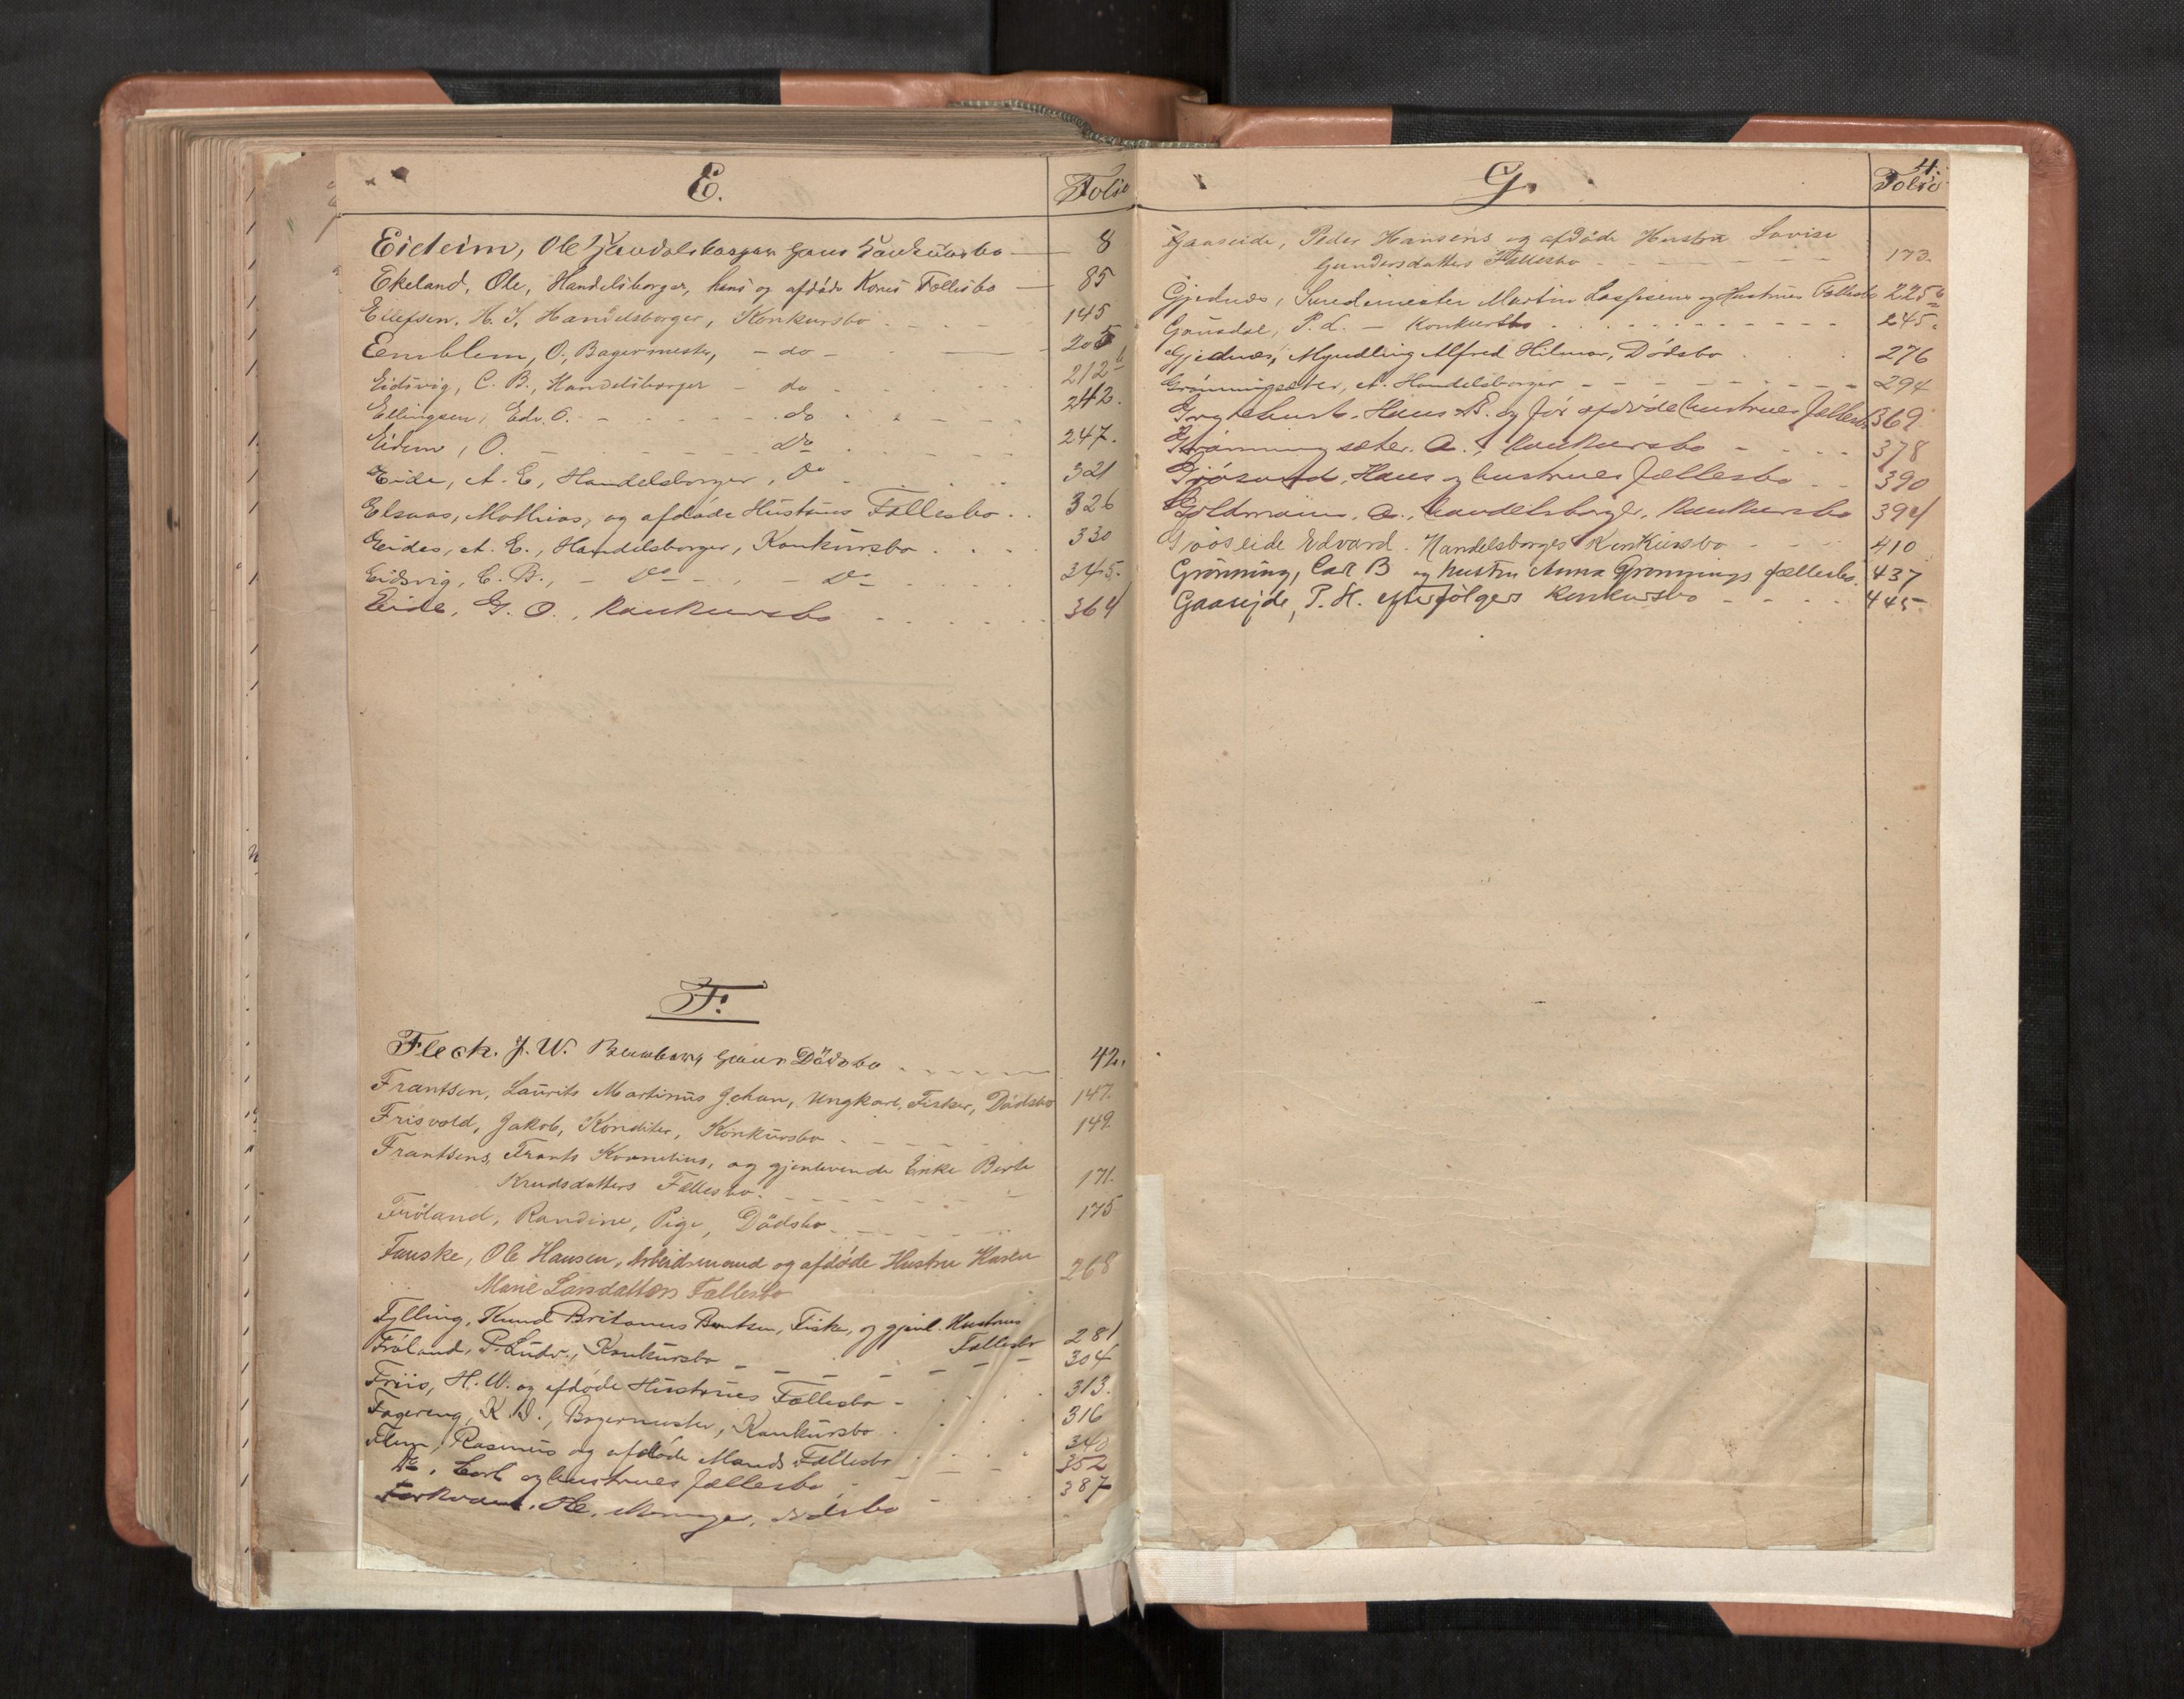 E.
Folio
Eideim, Ole Handelsborger hans Konkursbo — 8
Ekeland, Ole, Handelsborger, hans og afdøde Kones Fællesbo — 85
Ellefsen, H. J. Handelsborger, Konkursbo 145
Emblem, O., Bagermester, - do - 205
Eidsvig, C. B., Handelsborger - do - 212b
Ellingsen, Edv. O. - do 242.
Eidem, O. - Do 247.
Eide, A. E., Handelsborger, Do 321
Elsaas, Mathias, og afdøde Hustrus Fællesbo 326
Eides, A. E., Handelsborger, Konkursbo 330
Eidsvig, C. B., - Do - , - Do 345.
Eide, G. O., Konkursbo 364
F.
Fleck. J. W. hans Dödsbo 42.
Frantsen, Laurits Martinus Johan, Ungkarl, Fisker, Dödsbo 147.
Frisvold, Jakob, Konditor, Konkursbo 149.
Frantsens, Frants Kornelius, og gjenlevende Enke Berte
Knudsdatters Fællesbo. 171.
Fröland, Randine, Pige, Dödsbo 175
Fauske, Ole Hansen, Arbeidsmand og afdøde Hustru Karen
Marie Larsdatters Fællesbo 268
Fylling, Knud Britanus Bentsen, Fisker, og gjenl. Hustrues
Fællesbo 281
Fröland, P. Ludv., Konkursbo 304
Friis, H. W. og afdøde Hustrues Fællesbo 313.
Fagereng, K. D., Bagermester, Konkursbo 316
Flem, Rasmus og afdøde Mands Fællesbo 340
Do, Carl og hustrues fællesbo 352
Ole, dødsbo 387
4.
G.
Folio
Gaaseide, Peder Hansens og afdøde Hustru Lovise
Gundersdatters Fællesbo 173.
Gjednes, Smedemester Martin Lassesens og Hustrues Fællesbo 225b
Gausdal, P. L. — Konkursbo 245.
Gjednes, Myndling Alfred Hilmar, Dødsbo 276
Grønningsæter, A. Handelsborger 294
Hans B. og før afdøde hustrues fællesbo 369.
Grønningsæter. A., Konkursbo 378
Gjøsund, Hans og hustrues fællesbo 390
Goldmann, A., handelsborger, Konkursbo 394
Edvard. Handelsborger Konkursbo 410
Grønning, Carl B og hustru Anna Grønnings fællesbo. 437
Gaasejde, P. H. efterfølgers Konkursbo 445